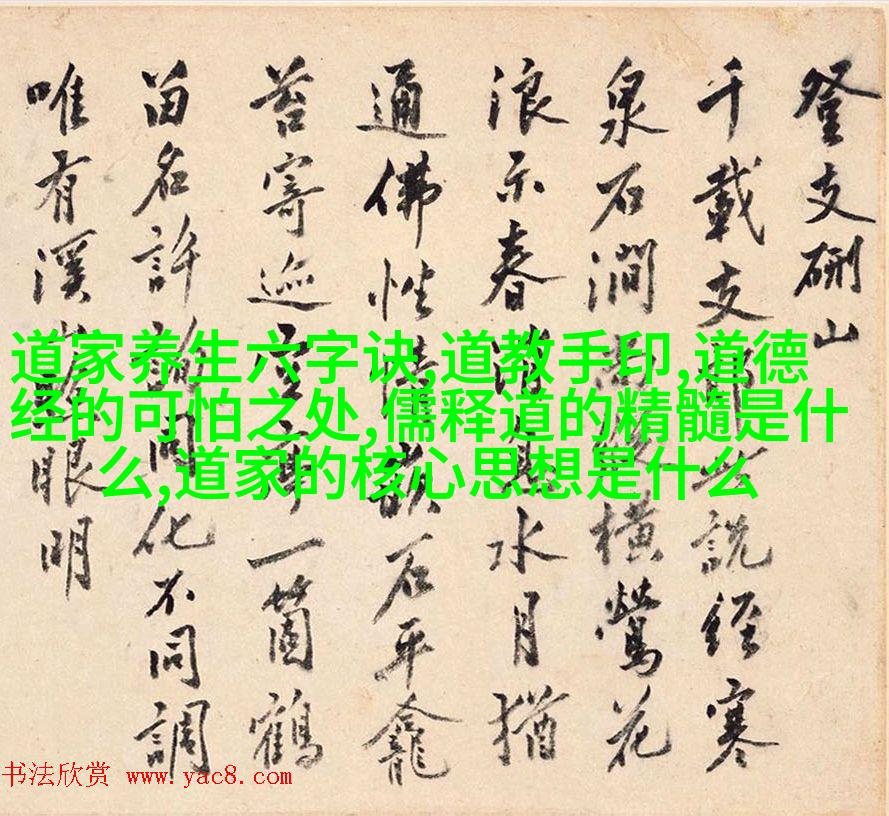 登支硎山
千載支說經寒
泉石澗橫鶯花
浪示春消息水月猶
通佛性情嵌石平龕
苔寄迹空一箇鶴
留名許同化不同調
唯有溪山眼明
道家养生六字诀,道教手印,道德
经的可怕之处,儒释道的精髓是什
么,道家的核心思想是什么
书法欣赏 www.yac8.com